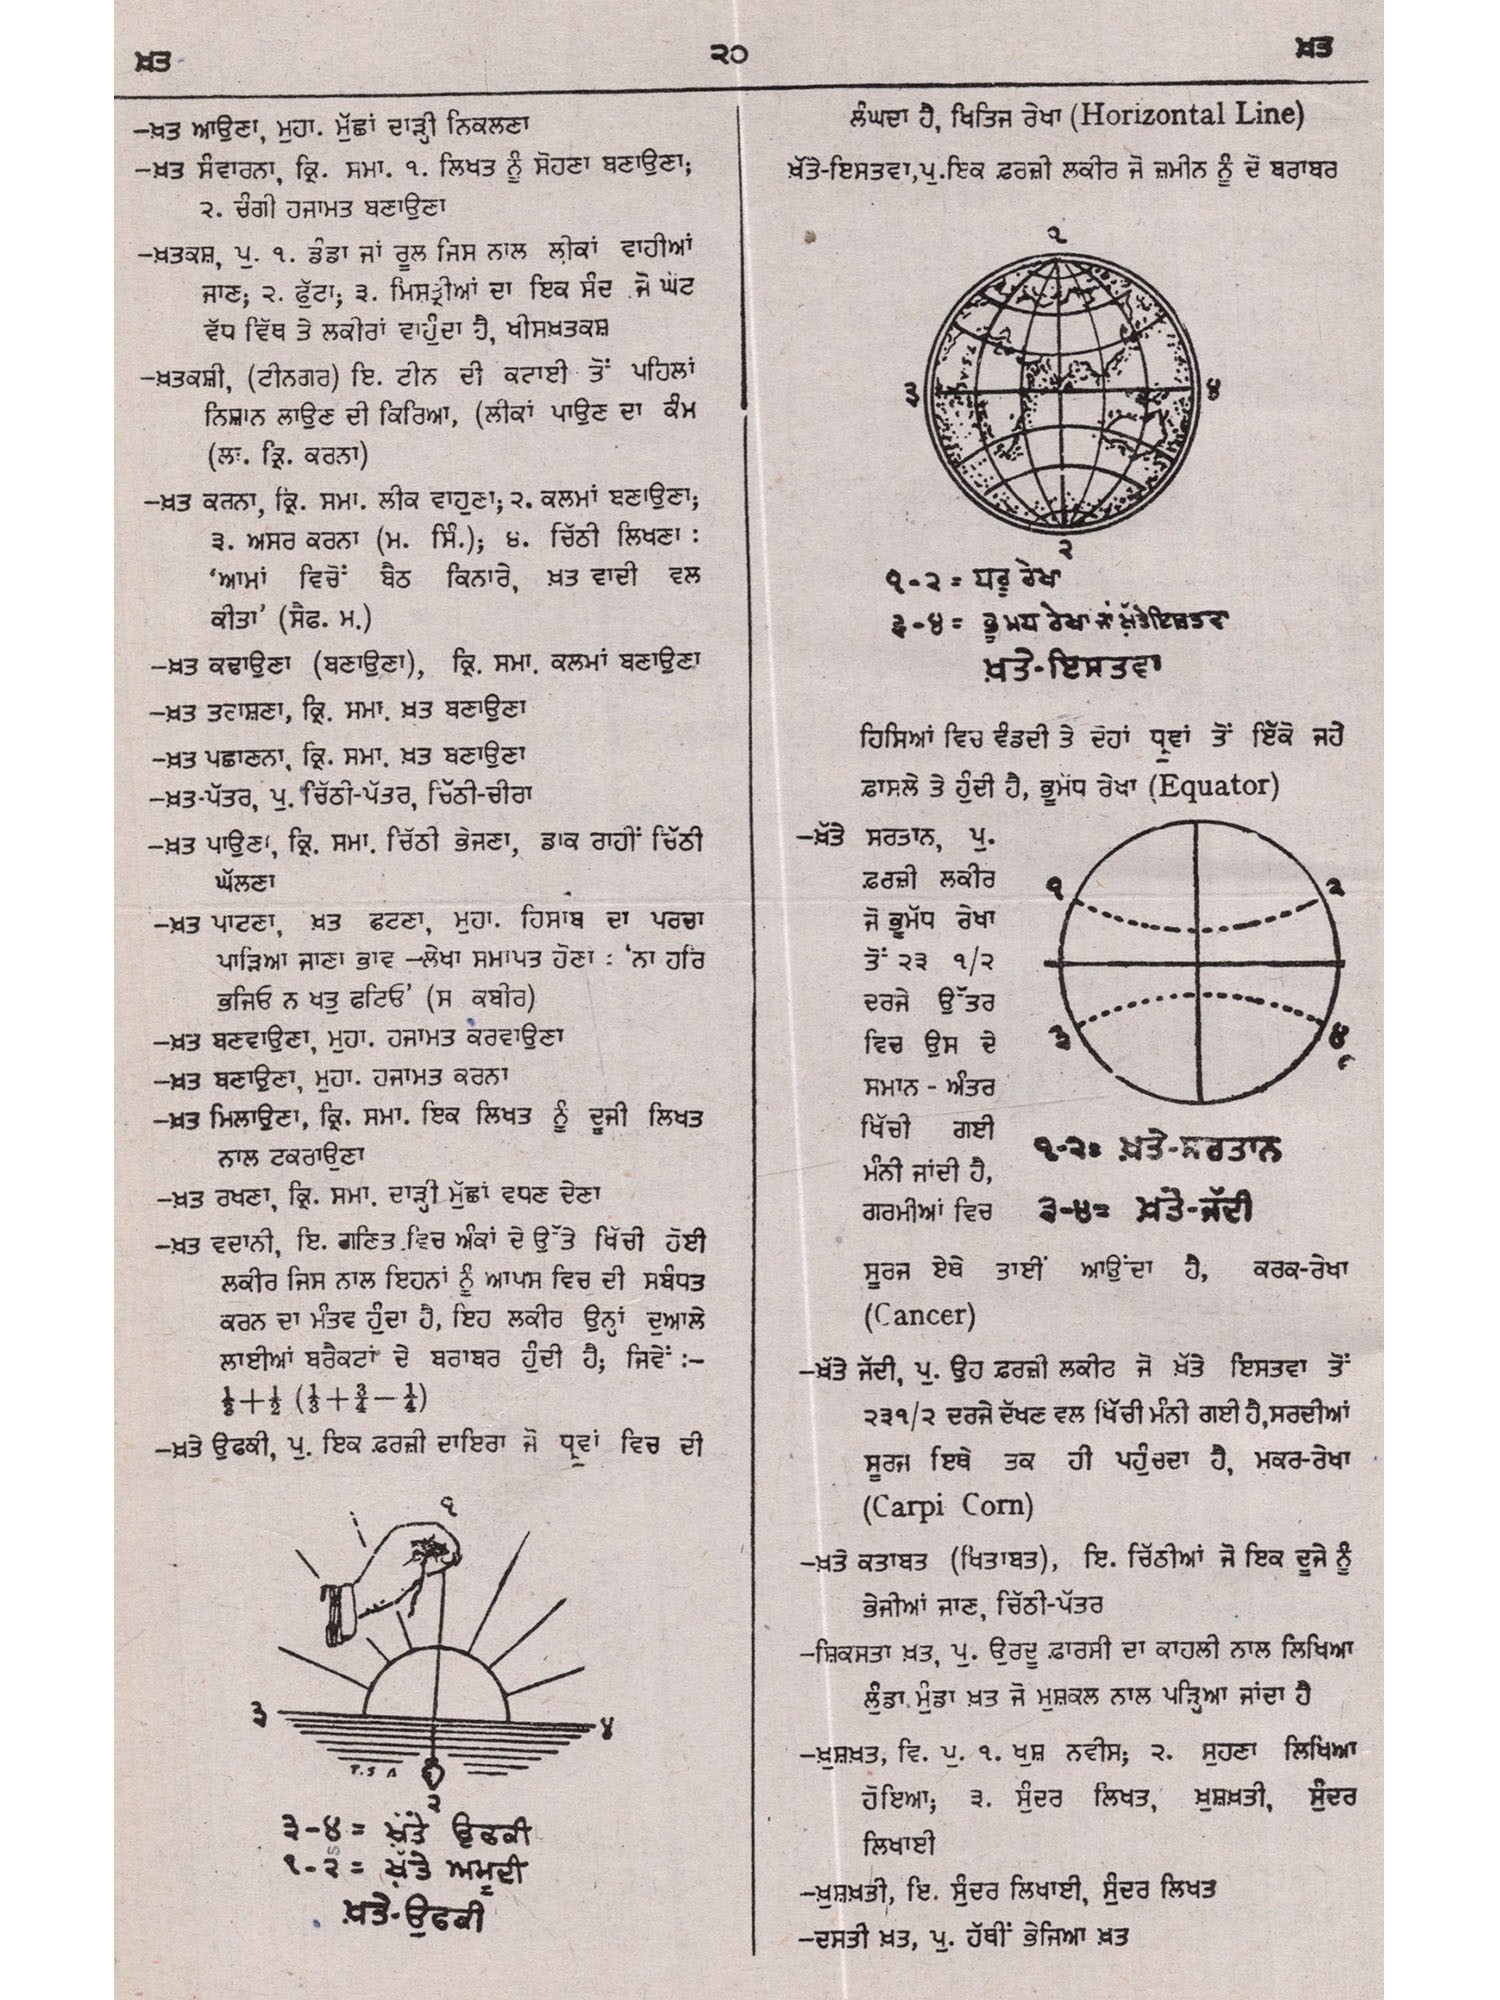 ਖ਼ਤ
੨੦
ਖ਼ਤ
–ਖ਼ਤ ਆਉਣਾ, ਮੁਹਾ. ਮੁੱਛਾਂ ਦਾੜ੍ਹੀ ਨਿਕਲਣਾ
–ਖ਼ਤ ਸੰਵਾਰਨਾ, ਕ੍ਰਿ. ਸਮਾ. ੧. ਲਿਖਤ ਨੂੰ ਸੋਹਣਾ ਬਣਾਉਣਾ;
੨. ਚੰਗੀ ਹਜਾਮਤ ਬਣਾਉਣਾ
–ਖ਼ਤਕਸ਼, ਪੁ. ੧. ਡੰਡਾ ਜਾਂ ਰੂਲ ਜਿਸ ਨਾਲ ਲੀਕਾਂ ਵਾਹੀਆਂ
ਜਾਣ; ੨. ਫੁੱਟਾ; ੩. ਮਿਸਤ੍ਰੀਆਂ ਦਾ ਇਕ ਸੰਦ ਜੋ ਘੱਟ
ਵੱਧ ਵਿੱਥ ਤੇ ਲਕੀਰਾਂ ਵਾਹੁੰਦਾ ਹੈ, ਖੀਸਖ਼ਤਕਸ਼
–ਖ਼ਤਕਸ਼ੀ, (ਟੀਨਗਰ) ਇ. ਟੀਨ ਦੀ ਕਟਾਈ ਤੋਂ ਪਹਿਲਾਂ
ਨਿਸ਼ਾਨ ਲਾਉਣ ਦੀ ਕਿਰਿਆ, (ਲੀਕਾਂ ਪਾਉਣ ਦਾ ਕੰਮ
(ਲਾ. ਕ੍ਰਿ. ਕਰਨਾ)
–ਖ਼ਤ ਕਰਨਾ, ਕ੍ਰਿ. ਸਮਾ. ਲੀਕ ਵਾਹੁਣਾ; ੨. ਕਲਮਾਂ ਬਣਾਉਣਾ;
੩. ਅਸਰ ਕਰਨਾ (ਮ. ਸਿੰ.); ੪. ਚਿੱਠੀ ਲਿਖਣਾ :
'ਆਮਾਂ ਵਿਚੋਂ ਬੈਠ ਕਿਨਾਰੇ, ਖ਼ਤ ਵਾਦੀ ਵਲ
ਕੀਤਾ' (ਸੈਫ. ਮ.)
–ਖ਼ਤ ਕਢਾਉਣਾ (ਬਣਾਉਣਾ), ਕ੍ਰਿ. ਸਮਾ. ਕਲਮਾਂ ਬਣਾਉਣਾ
–ਖ਼ਤ ਤਰਾਸ਼ਣਾ, ਕ੍ਰਿ. ਸਮਾ. ਖ਼ਤ ਬਣਾਉਣਾ
–ਖ਼ਤ ਪਛਾਣਨਾ, ਕ੍ਰਿ. ਸਮਾ. ਖ਼ਤ ਬਣਾਉਣਾ
–ਖ਼ਤ-ਪੱਤਰ, ਪੁ. ਚਿੱਠੀ-ਪੱਤਰ, ਚਿੱਠੀ-ਚੀਰਾ
–ਖ਼ਤ ਪਾਉਣਾ, ਕ੍ਰਿ. ਸਮਾ. ਚਿੱਠੀ ਭੇਜਣਾ, ਡਾਕ ਰਾਹੀਂ ਚਿੱਠੀ
ਘੱਲਣਾ
–ਖ਼ਤ ਪਾਟਣਾ, ਖ਼ਤ ਫਟਣਾ, ਮੁਹਾ. ਹਿਸਾਬ ਦਾ ਪਰਚਾ
ਪਾੜਿਆ ਜਾਣਾ ਭਾਵ –ਲੇਖਾ ਸਮਾਪਤ ਹੋਣਾ : 'ਨਾ ਹਰਿ
ਭਜਿਓ ਨ ਖਤੁ ਫਟਿਓ' (ਸ ਕਬੀਰ)
–ਖ਼ਤ ਬਣਵਾਉਣਾ, ਮੁਹਾ. ਹਜਾਮਤ ਕਰਵਾਉਣਾ
–ਖ਼ਤ ਬਣਾਉਣਾ, ਮੁਹਾ. ਹਜਾਮਤ ਕਰਨਾ
–ਖ਼ਤ ਮਿਲਾਉਣਾ, ਕ੍ਰਿ. ਸਮਾ. ਇਕ ਲਿਖਤ ਨੂੰ ਦੂਜੀ ਲਿਖਤ
ਨਾਲ ਟਕਰਾਉਣਾ
–ਖ਼ਤ ਰਖਣਾ, ਕ੍ਰਿ. ਸਮਾ. ਦਾੜ੍ਹੀ ਮੁੱਛਾਂ ਵਧਣ ਦੇਣਾ
–ਖ਼ਤ ਵਦਾਨੀ, ਇ. ਗਣਿਤ ਵਿਚ ਅੰਕਾਂ ਦੇ ਉੱਤੇ ਖਿੱਚੀ ਹੋਈ
ਲਕੀਰ ਜਿਸ ਨਾਲ ਇਹਨਾਂ ਨੂੰ ਆਪਸ ਵਿਚ ਦੀ ਸਬੰਧਤ
ਕਰਨ ਦਾ ਮੰਤਵ ਹੁੰਦਾ ਹੈ, ਇਹ ਲਕੀਰ ਉਨ੍ਹਾਂ ਦੁਆਲੇ
ਲਾਈਆਂ ਬਰੈਕਟਾਂ ਦੇ ਬਰਾਬਰ ਹੁੰਦੀ ਹੈ; ਜਿਵੇਂ :–
⅓+½ (⅓+¾–¼)
–ਖ਼ਤੇ ਉਫਕੀ, ਪੁ. ਇਕ ਫ਼ਰਜ਼ੀ ਦਾਇਰਾ ਜੋ ਧ੍ਰੂਵਾਂ ਵਿਚ ਦੀ
੧
੩
੪
T.S.A
੨
੩-੪ = ਖ਼ੱਤੇ ਉਫਕੀ
੧-੨ = ਖ਼ੱਤੇ ਅਮੂਦੀ
ਖ਼ਤੇ-ਉਫਕੀ
ਲੰਘਦਾ ਹੈ, ਖਿਤਿਜ ਰੇਖਾ (Horizontal Line)
ਖ਼ੱਤੇ-ਇਸਤਵਾ,ਪੁ.ਇਕ ਫ਼ਰਜ਼ੀ ਲਕੀਰ ਜੋ ਜ਼ਮੀਨ ਨੂੰ ਦੋ ਬਰਾਬਰ
੧
੩
੪
੨
੧-੨ = ਧਰੂ ਰੇਖਾ
੩-੪ = ਭੂ ਮਧ ਰੇਖਾ ਜਾਂ ਖ਼ੱਤੇਇਸਤਵਾ
ਖ਼ਤੇ-ਇਸਤਵਾ
ਹਿਸਿਆਂ ਵਿਚ ਵੰਡਦੀ ਤੇ ਦੋਹਾਂ ਧ੍ਰੂਵਾਂ ਤੋਂ ਇੱਕੋ ਜਹੇ
ਫ਼ਾਸਲੇ ਤੇ ਹੁੰਦੀ ਹੈ, ਭੂਮੱਧ ਰੇਖਾ (Equator)
–ਖ਼ੱਤੇ ਸਰਤਾਨ, ਪੁ.
ਫ਼ਰਜ਼ੀ ਲਕੀਰ
ਜੋ ਭੂਮੱਧ ਰੇਖਾ
ਤੋਂ ੨੩ ੧/੨
ਦਰਜੇ ਉੱਤਰ
ਵਿਚ ਉਸ ਦੇ
ਸਮਾਨ - ਅੰਤਰ
ਖਿੱਚੀ ਗਈ
ਮੰਨੀ ਜਾਂਦੀ ਹੈ,
ਗਰਮੀਆਂ ਵਿਚ
੧
੨
੩
੪
੧-੨= ਖ਼ਤੇ-ਸਰਤਾਨ
੩-੪= ਖ਼ੱਤੇ-ਜੱਦੀ
ਸੂਰਜ ਏਥੇ ਤਾਈਂ ਆਉਂਦਾ ਹੈ, ਕਰਕ-ਰੇਖਾ
(Cancer)
–ਖ਼ੱਤੇ ਜੱਦੀ, ਪੁ. ਉਹ ਫ਼ਰਜ਼ੀ ਲਕੀਰ ਜੋ ਖ਼ੱਤੇ ਇਸਤਵਾ ਤੋਂ
੨੩੧/੨ ਦਰਜੇ ਦੱਖਣ ਵਲ ਖਿੱਚੀ ਮੰਨੀ ਗਈ ਹੈ,ਸਰਦੀਆਂ
ਸੂਰਜ ਇਥੇ ਤਕ ਹੀ ਪਹੁੰਚਦਾ ਹੈ, ਮਕਰ-ਰੇਖਾ
(Carpi Corn)
–ਖ਼ਤੋ ਕਤਾਬਤ (ਖਿਤਾਬਤ), ਇ. ਚਿੱਠੀਆਂ ਜੋ ਇਕ ਦੂਜੇ ਨੂੰ
ਭੇਜੀਆਂ ਜਾਣ, ਚਿੱਠੀ-ਪੱਤਰ
–ਸ਼ਿਕਸਤਾ ਖ਼ਤ, ਪੁ. ਉਰਦੂ ਫ਼ਾਰਸੀ ਦਾ ਕਾਹਲੀ ਨਾਲ ਲਿਖਿਆ
ਲੁੰਡਾ ਮੁੰਡਾ ਖ਼ਤ ਜੋ ਮੁਸ਼ਕਲ ਨਾਲ ਪੜ੍ਹਿਆ ਜਾਂਦਾ ਹੈ
–ਖ਼ੁਸ਼ਖ਼ਤ, ਵਿ. ਪੁ. ੧. ਖੁਸ਼ ਨਵੀਸ; ੨. ਸੁਹਣਾ ਲਿਖਿਆ
ਹੋਇਆ; ੩. ਸੁੰਦਰ ਲਿਖਤ, ਖ਼ੁਸ਼ਖ਼ਤੀ, ਸੁੰਦਰ
ਲਿਖਾਈ
–ਖ਼ੁਸ਼ਖ਼ਤੀ, ਇ. ਸੁੰਦਰ ਲਿਖਾਈ, ਸੁੰਦਰ ਲਿਖਤ
–ਦਸਤੀ ਖ਼ਤ, ਪੁ. ਹੱਥੀਂ ਭੇਜਿਆ ਖ਼ਤ